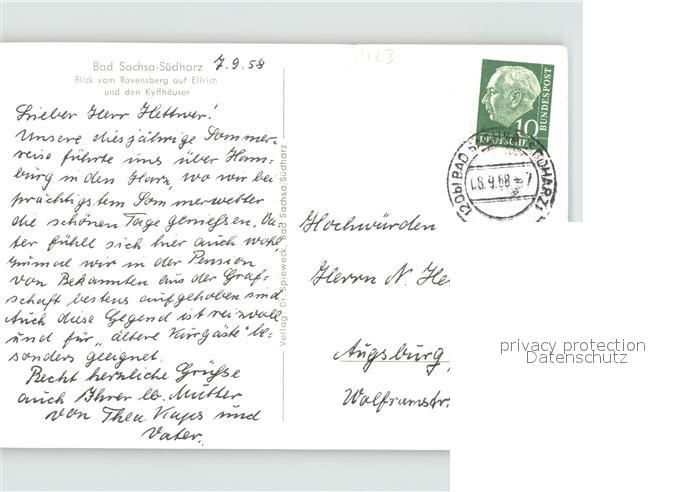 Bad Sachsa-Südharz 7.9.58
Blick vom Ravensberg auf Ellrich
und den Kyffhäuser
Lieber Herr Hettwer!
Unsere diesjährige Sommer-
reise führte uns über Ham-
burg in den Harz, wo wir bei
prächtigstem Sommerwetter
die schönen Tage genießen. Va-
ter fühlt sich hier auch wohl,
zumal wir in der Pension
von Bekannten aus der Graf-
schaft bestens aufgehoben sind.
Auch diese Gegend ist reizvoll
und für „ältere Kurgäste" be-
sonders geeignet.
Recht herzliche Grüße
auch Ihrer lb. Mutter
von Thea Kaps und
Vater.
Verlag Dr. Spieweck, Bad Sachsa/Südharz
10
DEUTSCHE
BUNDESPOST
(20b) BAD (HARZ)
Hochwürden
Herrn N. He
Augsburg,
Wolframstr.
privacy protection
Datenschutz